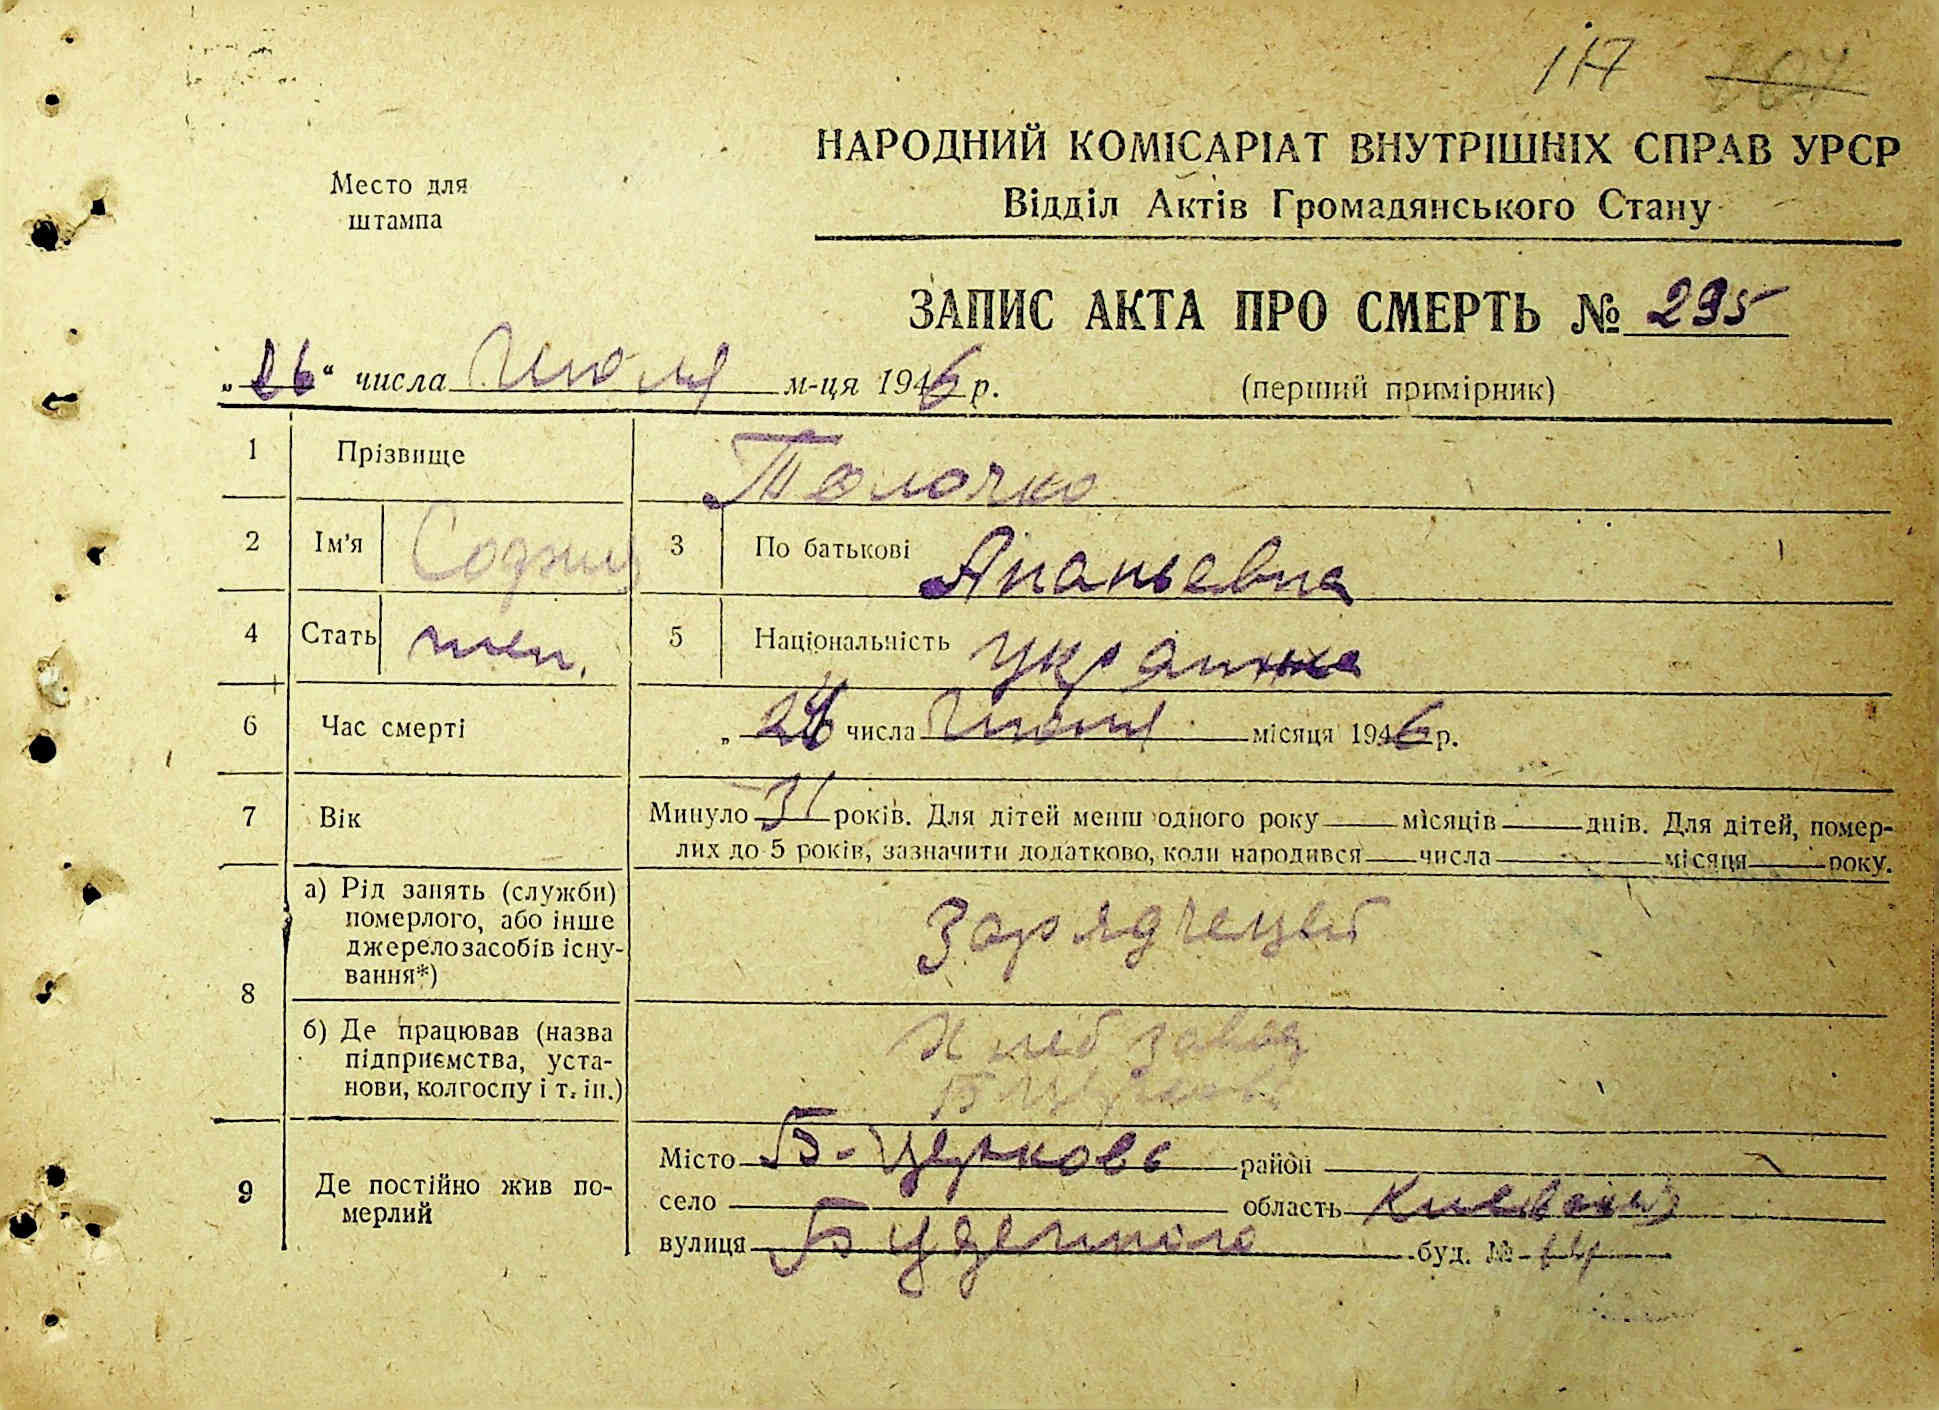 117
НАРОДНИЙ КОМІСАРІАТ ВНУТРІШНІХ СПРАВ УРСР
Место для
штампа
Відділ Актів Громадянського Стану
ЗАПИС АКТА ПРО СМЕРТЬ № 295
„26“ числа Июля м-ця 1946 р.
(перший примірник)
1 Прізвище Толочко
2 Ім'я София 3 По батькові Ананьевна
4 Стать жен. 5 Національність украинка
6 Час смерті „ числа Июля місяця 1946 р.
7 Вік Минуло 31 років. Для дітей менш одного року місяців днів. Для дітей, помер-
лих до 5 років, зазначити додатково, коли народився числа місяця року.
8 а) Рід занять (служби)
померлого, або інше
джерело засобів існу-
вання*)
б) Де працював (назва
підприємства, уста-
нови, колгоспу і т. ін.)
Хлеб завод
9 Де постійно жив по-
мерлий
Місто Б-Церковь район
село область Киевская
вулиця Буденного буд. №